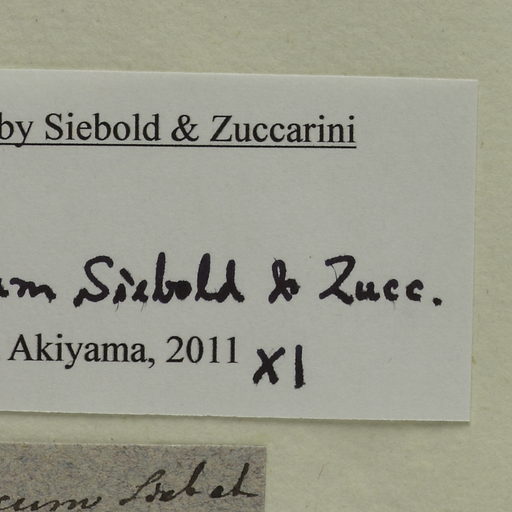 by Siebold & Zuccarini
um Siebold & Zucc.
Akiyama, 2011 XI
cum Sieb et